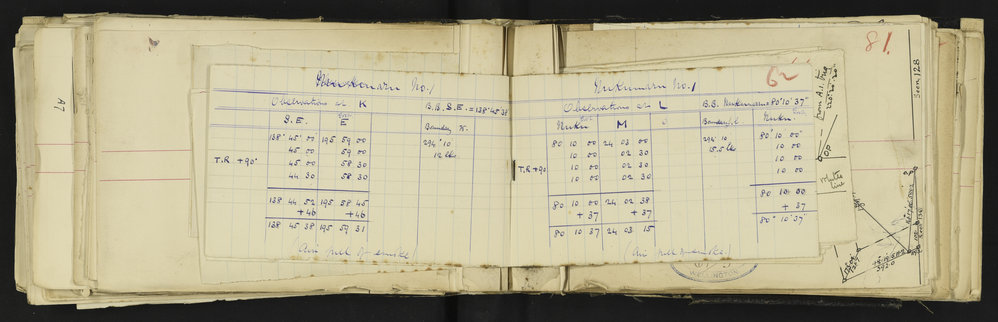 A7
No. 1
Observations at K
B.S. S.E. = 138° 45' 38
S.E. E
Boundary K.
138° 45' 00 195 59 00
294° 10
45 00 59 00
12 lks
T.R +90°
45 00 58 30
44 30 58 30
138 44 52 195 58 45
+46 +46
138 45 38 195 59 31
(Air full of smoke)
62
Nukumaru No. 1
Observations at L
B.S. Nukumaru = 80° 10' 37"
Nuku M
Boundary L
Nuku
80 10 00 24 03 00
294° 10
80° 10' 00"
10 00 02 30
15.5 lks
10 00
T.R +90
10 00 02 30
10 00
10 00 02 30
10 00
80 10 00 24 02 38
80 10 00
+37 +37
+37
80 10 37 24 03 15
80° 10' 37"
(Air full of smoke)
WELLINGTON
81.
from A.1. Trig
OP
White line
Seen 128